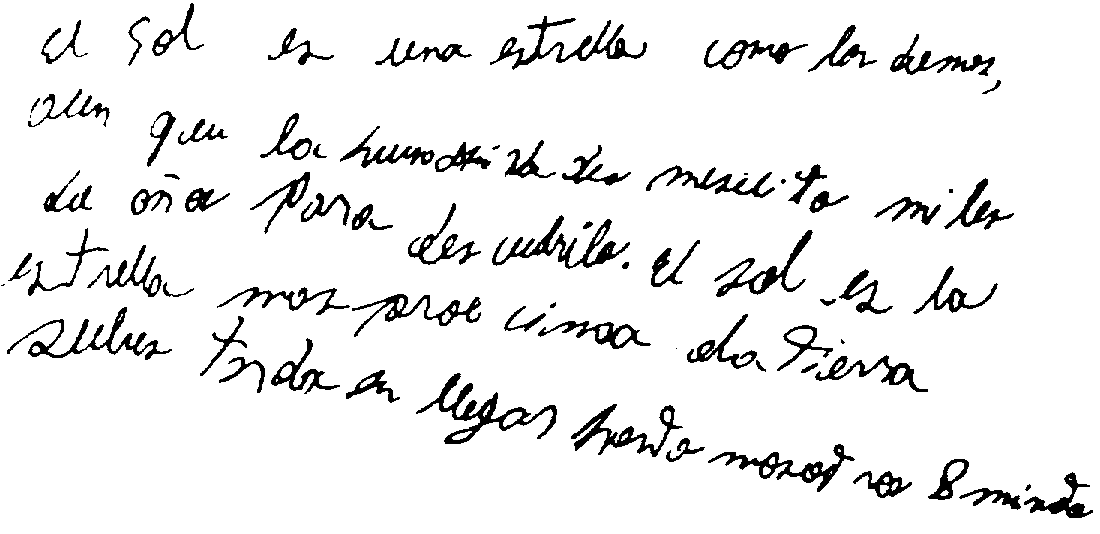 El Sol es una estrella como los demas,
aun que la humanida des mesecito miles
de aña para des cudrilo. El sol es la
estrella mas proc cimoa ela tierra
suluz tarda en llegar hasta nosotros 8 minuto